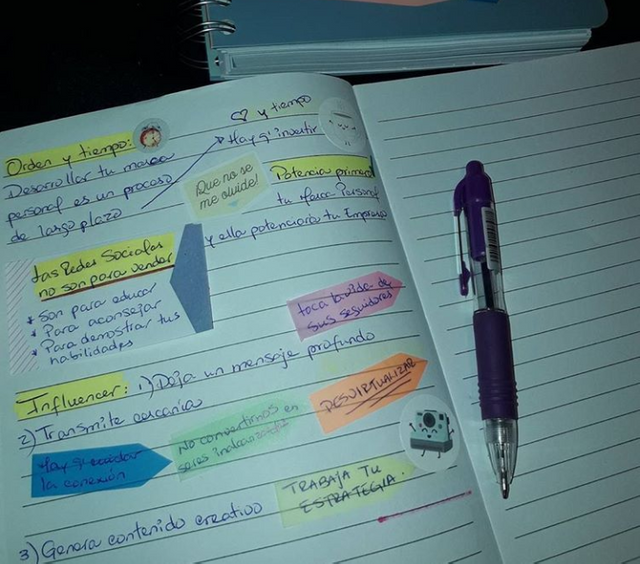 ♡ y tiempo
Orden y tiempo:
Hay q' invertir
Desarrollar tu marca
personal es un proceso
de largo plazo
Que no se
me olvide!
Potencia primero
tu Marca Personal
y ella potenciará tu Empresa
Las Redes Sociales
no son para vender
* Son para educar
* Para aconsejar
* Para demostrar tus
habilidades
toca la vida de
sus seguidores
Influencer: 1) Deja un mensaje profundo
2) Transmite cercanía
DESVIRTUALIZAR
Hay q'
la conexión
No convertirnos en
seres
TRABAJA TU
ESTRATEGIA.
3) Genera contenido creativo